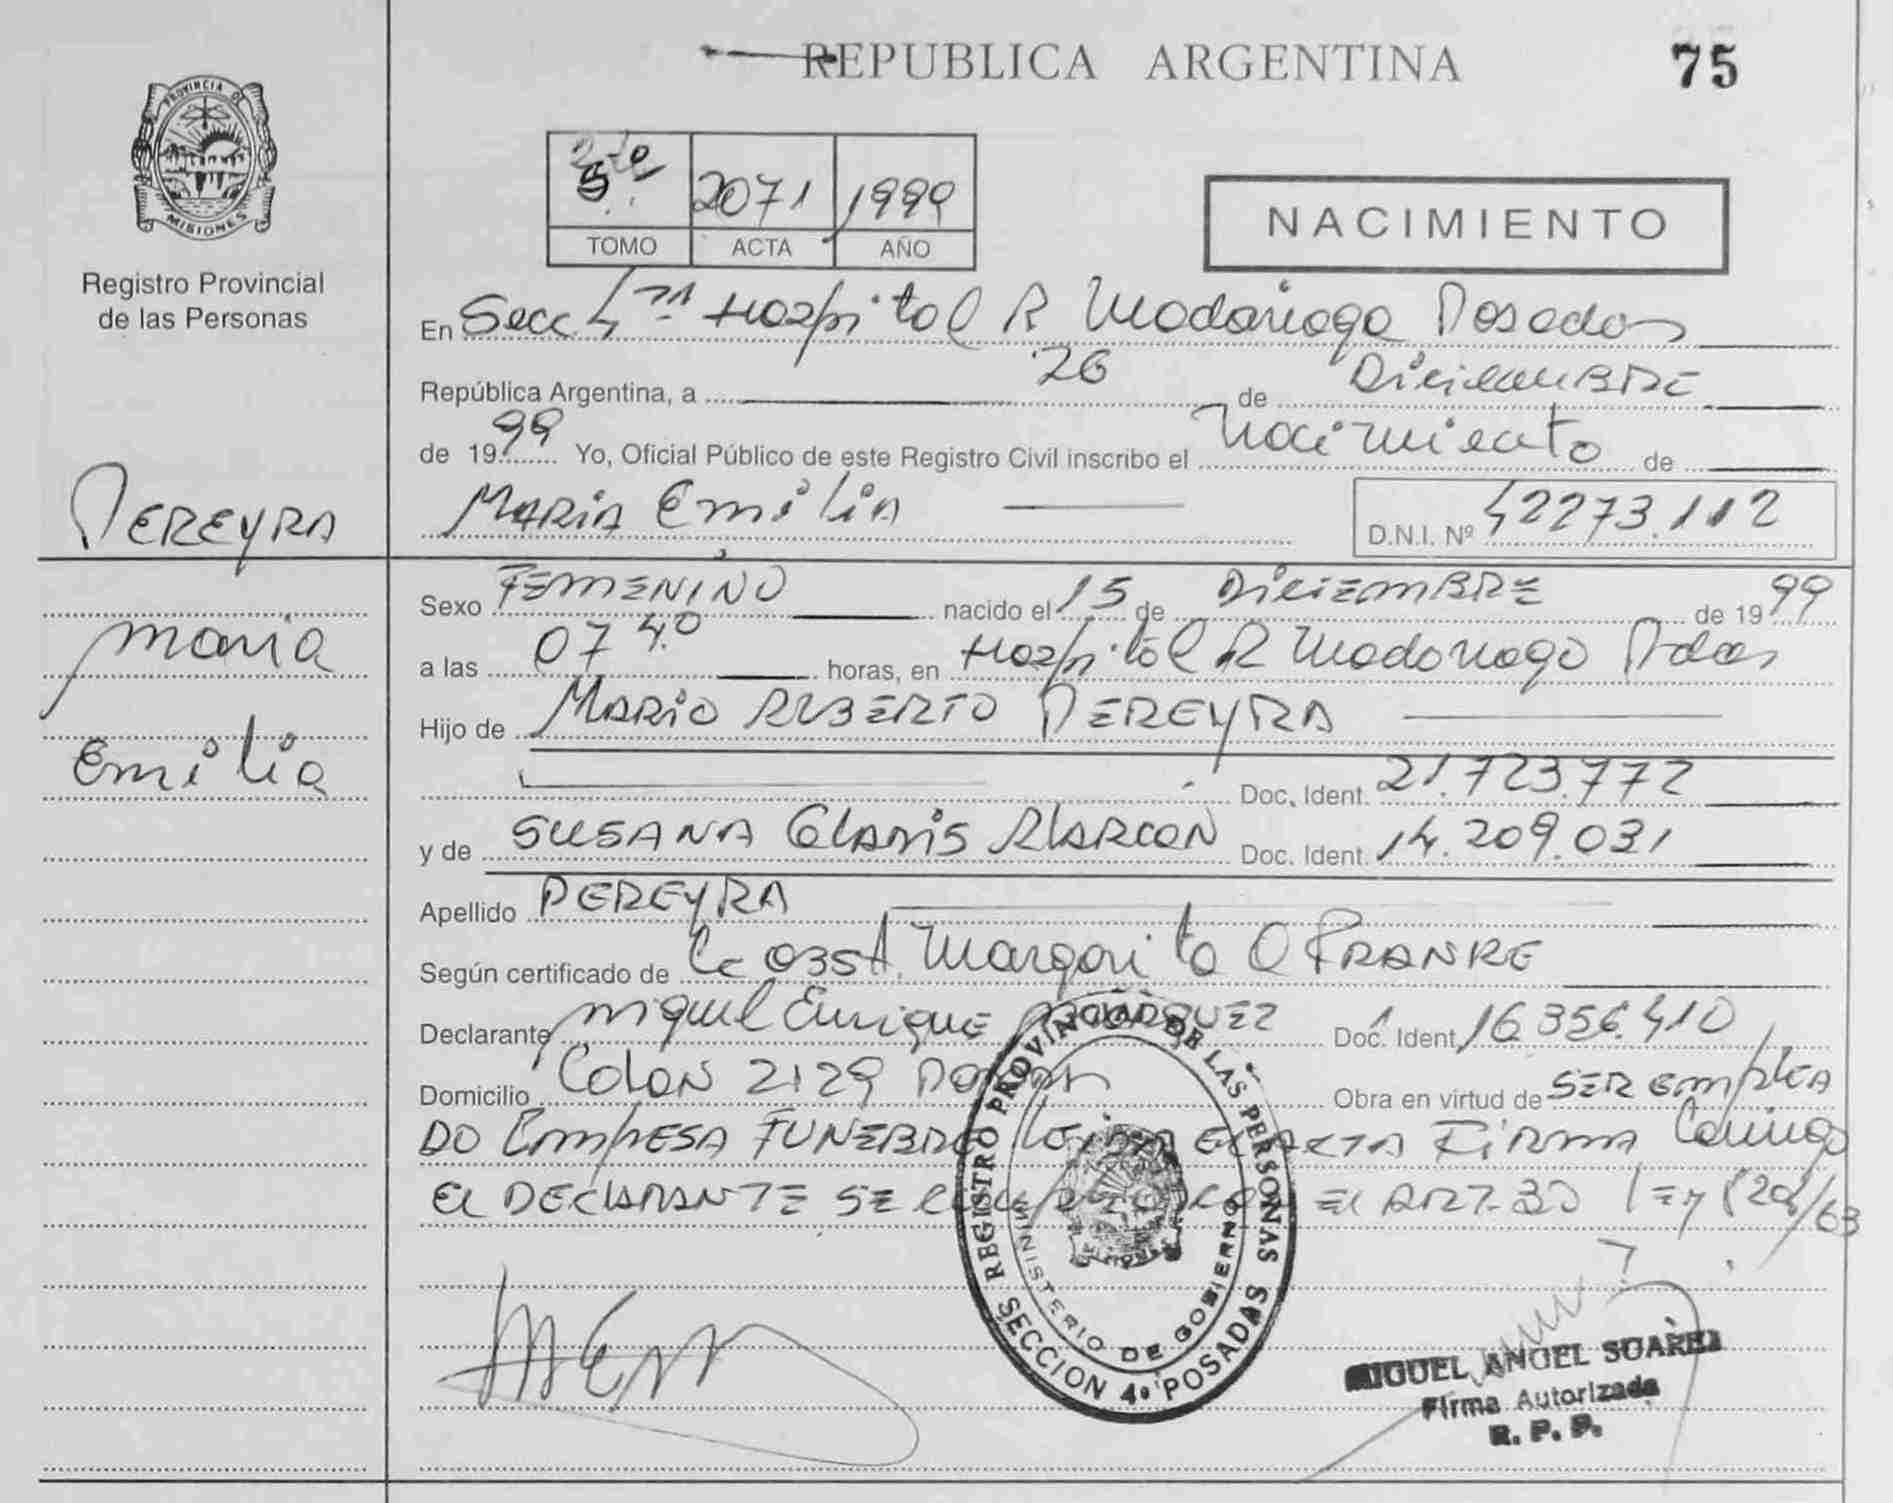 REPUBLICA ARGENTINA 75
PROVINCIA DE
MISIONES
Registro Provincial
de las Personas
2071 1999
TOMO ACTA AÑO
NACIMIENTO
En Secc. 4ta Hospital R Madariaga Posadas
República Argentina, a 26 de Diciembre
de 1999 Yo, Oficial Público de este Registro Civil inscribo el Nacimiento de
PEREYRA
Maria Emilia
MARIA Emilia D.N.I. Nº 42273.112
Sexo FEMENINO nacido el 15 de DICIEMBRE de 1999
a las 07 40 horas, en Hospital R Madariaga Pdas
Hijo de MARIO ALBERTO PEREYRA
Doc. Ident. 21.723.772
y de SUSANA GLADIS ALARCON Doc. Ident. 14.209.031
Apellido PEREYRA
Según certificado de Lc OBST. Margarita O FRANKE
Declarante Miguel Enrique MARQUEZ Doc. Ident. 16.356.410
Domicilio COLON 2129 Obra en virtud de SER EMPLEA
DO EMPRESA FUNEBRE ACTA FIRMA Conmigo
EL DECLARANTE SE EL ART. 30 LEY 8204/63
REGISTRO PROVINCIAL DE LAS PERSONAS
MINISTERIO DE GOBIERNO
SECCION 4º POSADAS
MIGUEL ANGEL SUAREZ
Firma Autorizada
R. P. P.